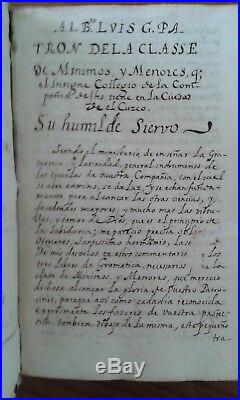 AL Bº LUIS G. PA
TRON DE LA CLASSE
De Minimos, y Menores, q̃
el Insigne Collegio de la Com
pañia de Jhs tiene en la Ciudad
De el Cuzco.
Su humilde Siervo
Siendo el ministerio de enseñar la Gra
matica, y latinidad, general instrumento de
las escuelas de nuestra Compañia, con el qual
se abre camino, se da luz, y se echan fundamen
tos, para alcanzar las otras ciencias, y
facultades mayores; y mucho mas las virtu
des, y temor de Dios, que es el principio de
la Sabiduria; me parecio precisa obli
Otmeres, Santissimo hermano,
he mis desvelos en este commentario
tres libros de Grammatica necesarios,
clase de Minimos, y Menores, que merecio
dichosa alcanzar la gloria de Vuestro Patroci
nio, paraque assi como cadadia reconocida
experimenta los favores de vuestra pa
tambien debajo de la misma, este pequeño
tra-
© eBay